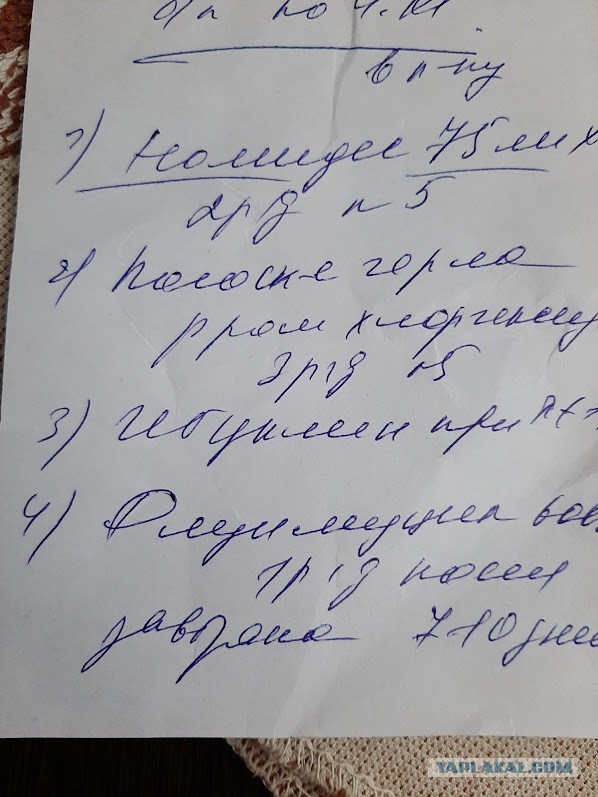 по ч.м
в п-ку
1) Номидес 75 мг х
2 р/д n 5
2) Полоск-е горла
р-ром хлоргексид
3 р/д n5
3) Ибуклин при
4) Флуимуцил 600
1 р/д после
завтрака 7-10 дней
YAPLAKAL.COM